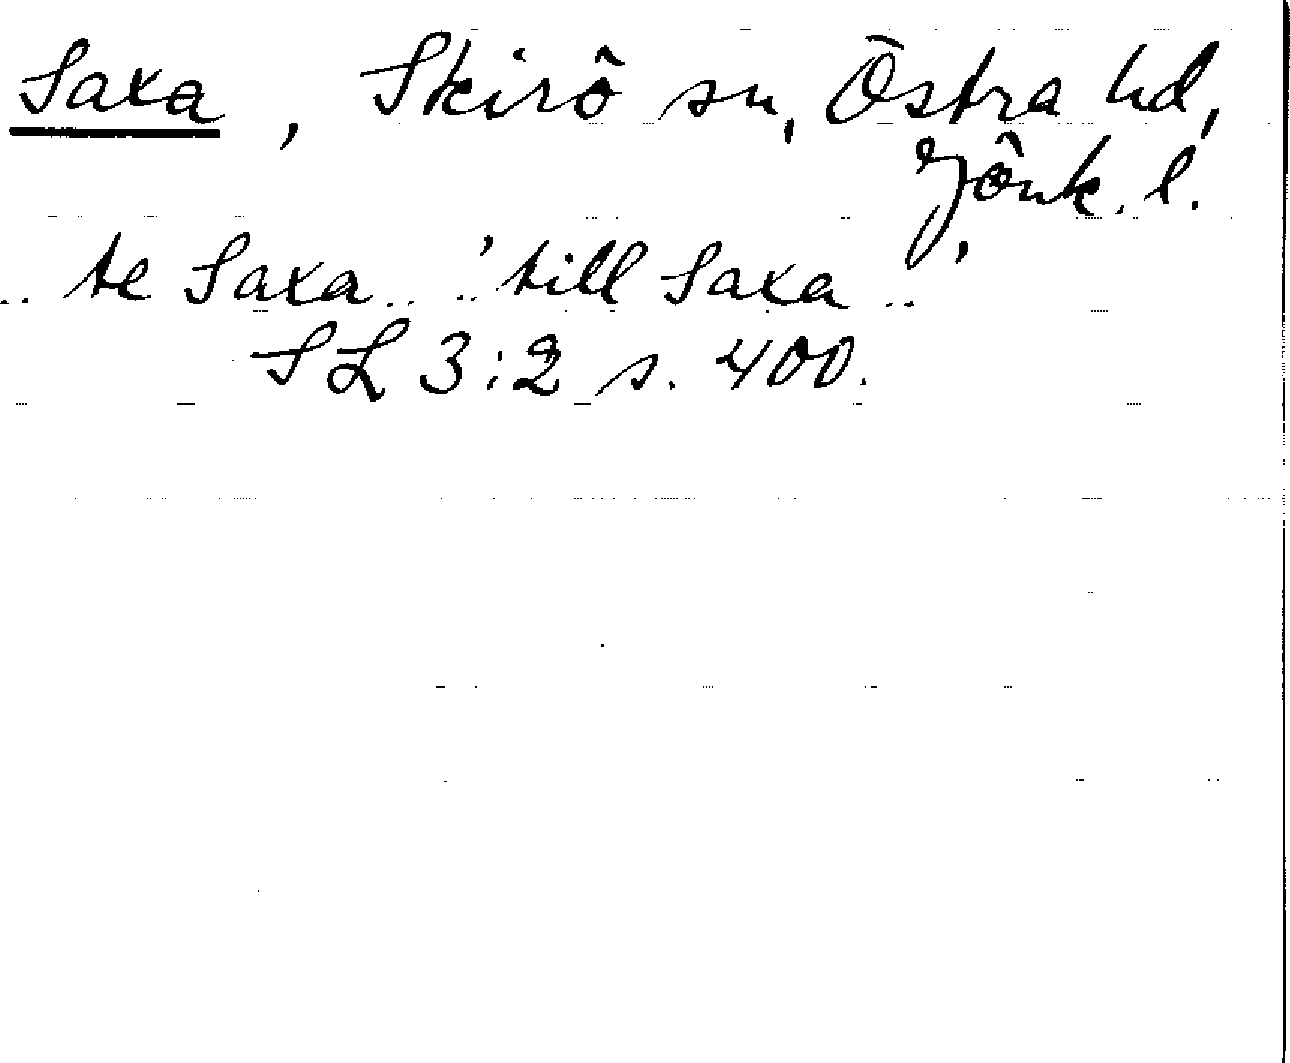 Saxa, Skirö sn, Östra hd,
Jönk. l.
.. te Saxa.. ..'till Saxa'..
SL 3:2 s. 400.